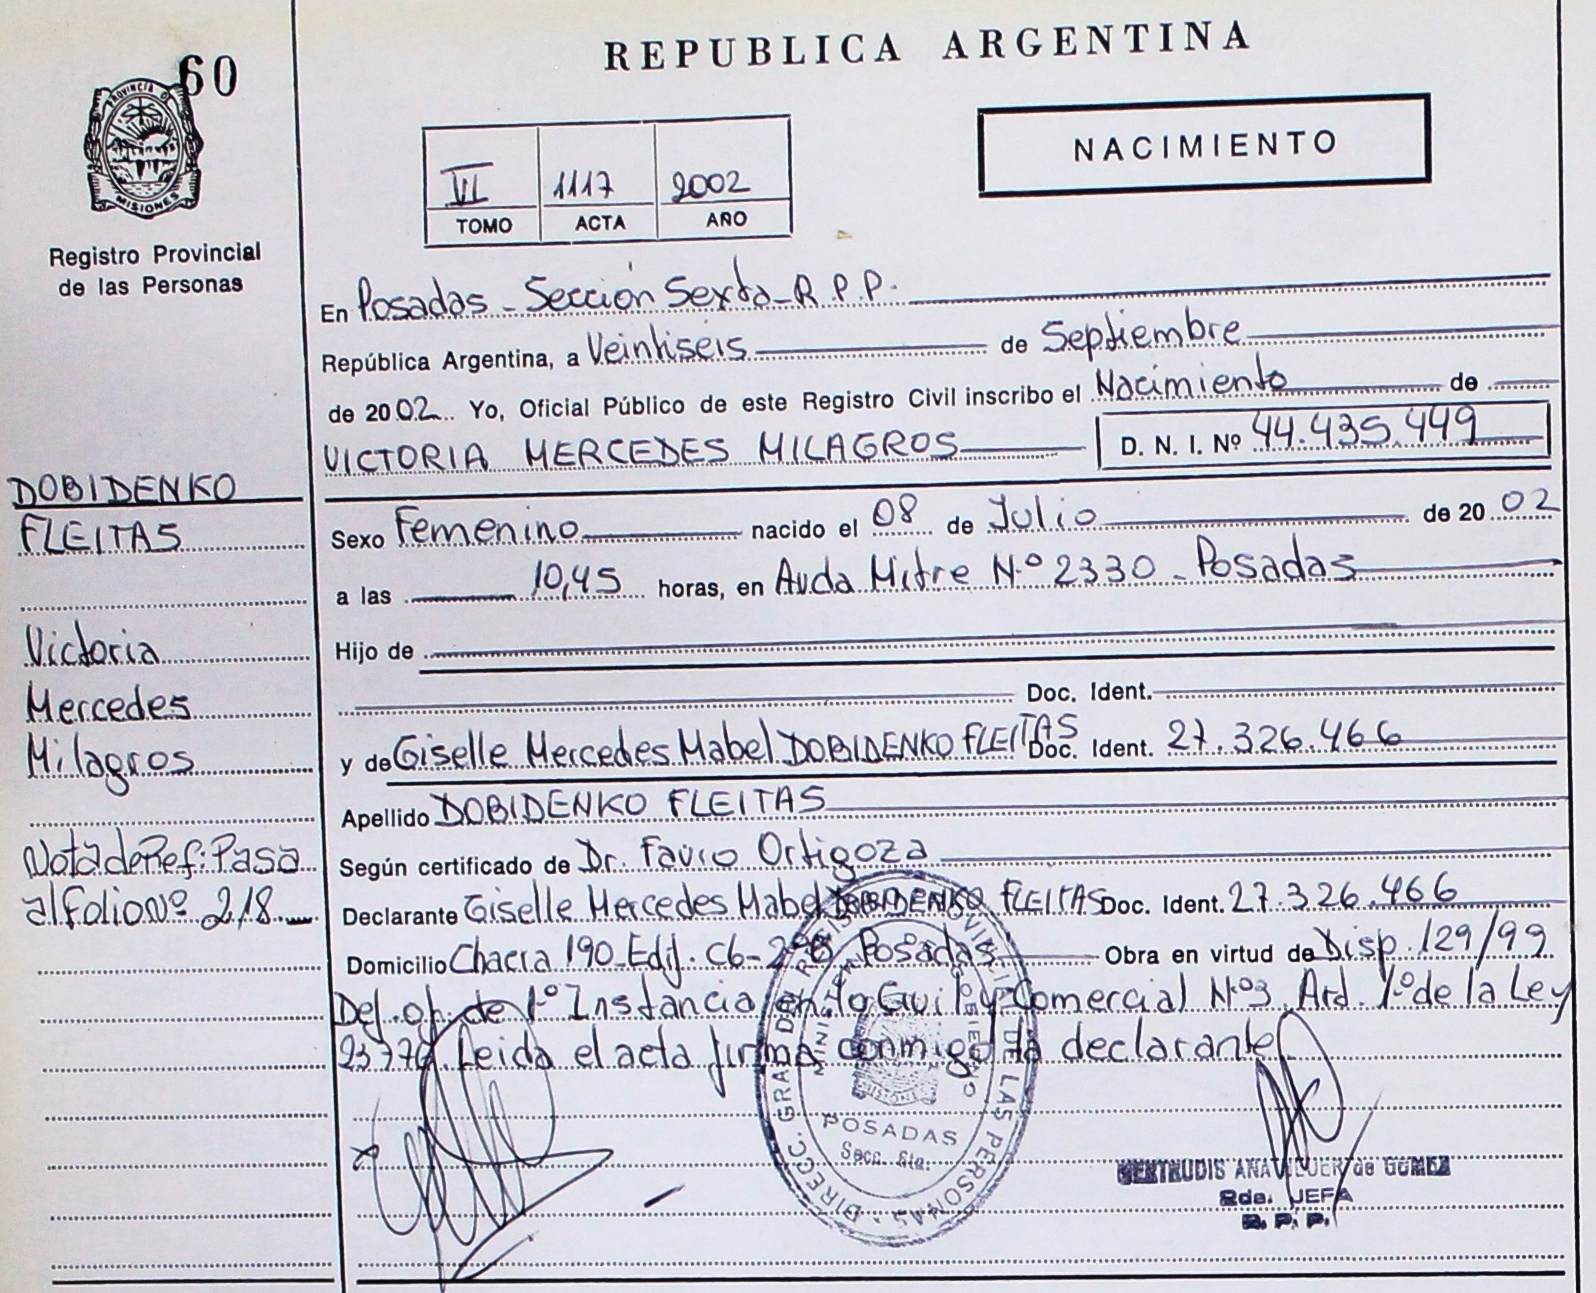 60
PROVINCIA DE
MISIONES
Registro Provincial
de las Personas
DOBIDENKO
FLEITAS
Victoria
Mercedes
Milagros
Nota de Ref: Pasa
al folio Nº 218
REPUBLICA ARGENTINA
VI 1117 2002
TOMO ACTA AÑO
NACIMIENTO
En Posadas - Sección Sexta - R.P.P.
República Argentina, a Veintiseis de Septiembre
de 2002 Yo, Oficial Público de este Registro Civil inscribo el Nacimiento de
VICTORIA MERCEDES MILAGROS D. N. I. Nº 44.435.449
Sexo Femenino nacido el 08 de Julio de 2002
a las 10,45 horas, en Avda Mitre N.º 2330 - Posadas
Hijo de
Doc. Ident.
y de Giselle Mercedes Mabel DOBIDENKO FLEITAS Doc. Ident. 27.326.466
Apellido DOBIDENKO FLEITAS
Según certificado de Dr. Favio Ortigoza
Declarante Giselle Mercedes Mabel DOBIDENKO FLEITAS Doc. Ident. 27.326.466
Domicilio Chacra 190 Edif. C6- Posadas Obra en virtud de Disp. 129/99
Def. of. de 1º Instancia en lo Civil y Comercial Nº3 Art. 1º de la Ley
23776 Leida el acta firma conmigo la declarante
DIRECC. GRAL. DEL REGISTRO PROVINCIAL DE LAS PERSONAS
MINISTERIO DE GOBIERNO
POSADAS
Secc. 6ta.
GERTRUDIS ANA de GOMEZ
2da. JEFA
R. P. P.